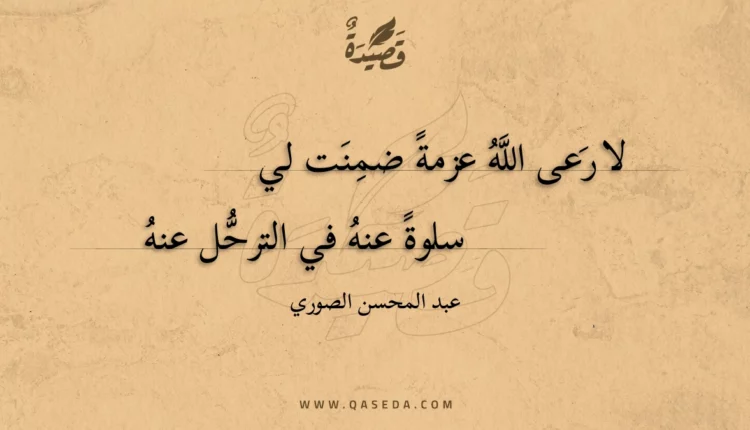 قَصِيدَةٌ
لا رَعى اللَّهُ عزمةً ضمِنَت لي
سلوةً عنهُ في الترحُّل عنهُ
عبد المحسن الصوري
WWW.QASEDA.COM